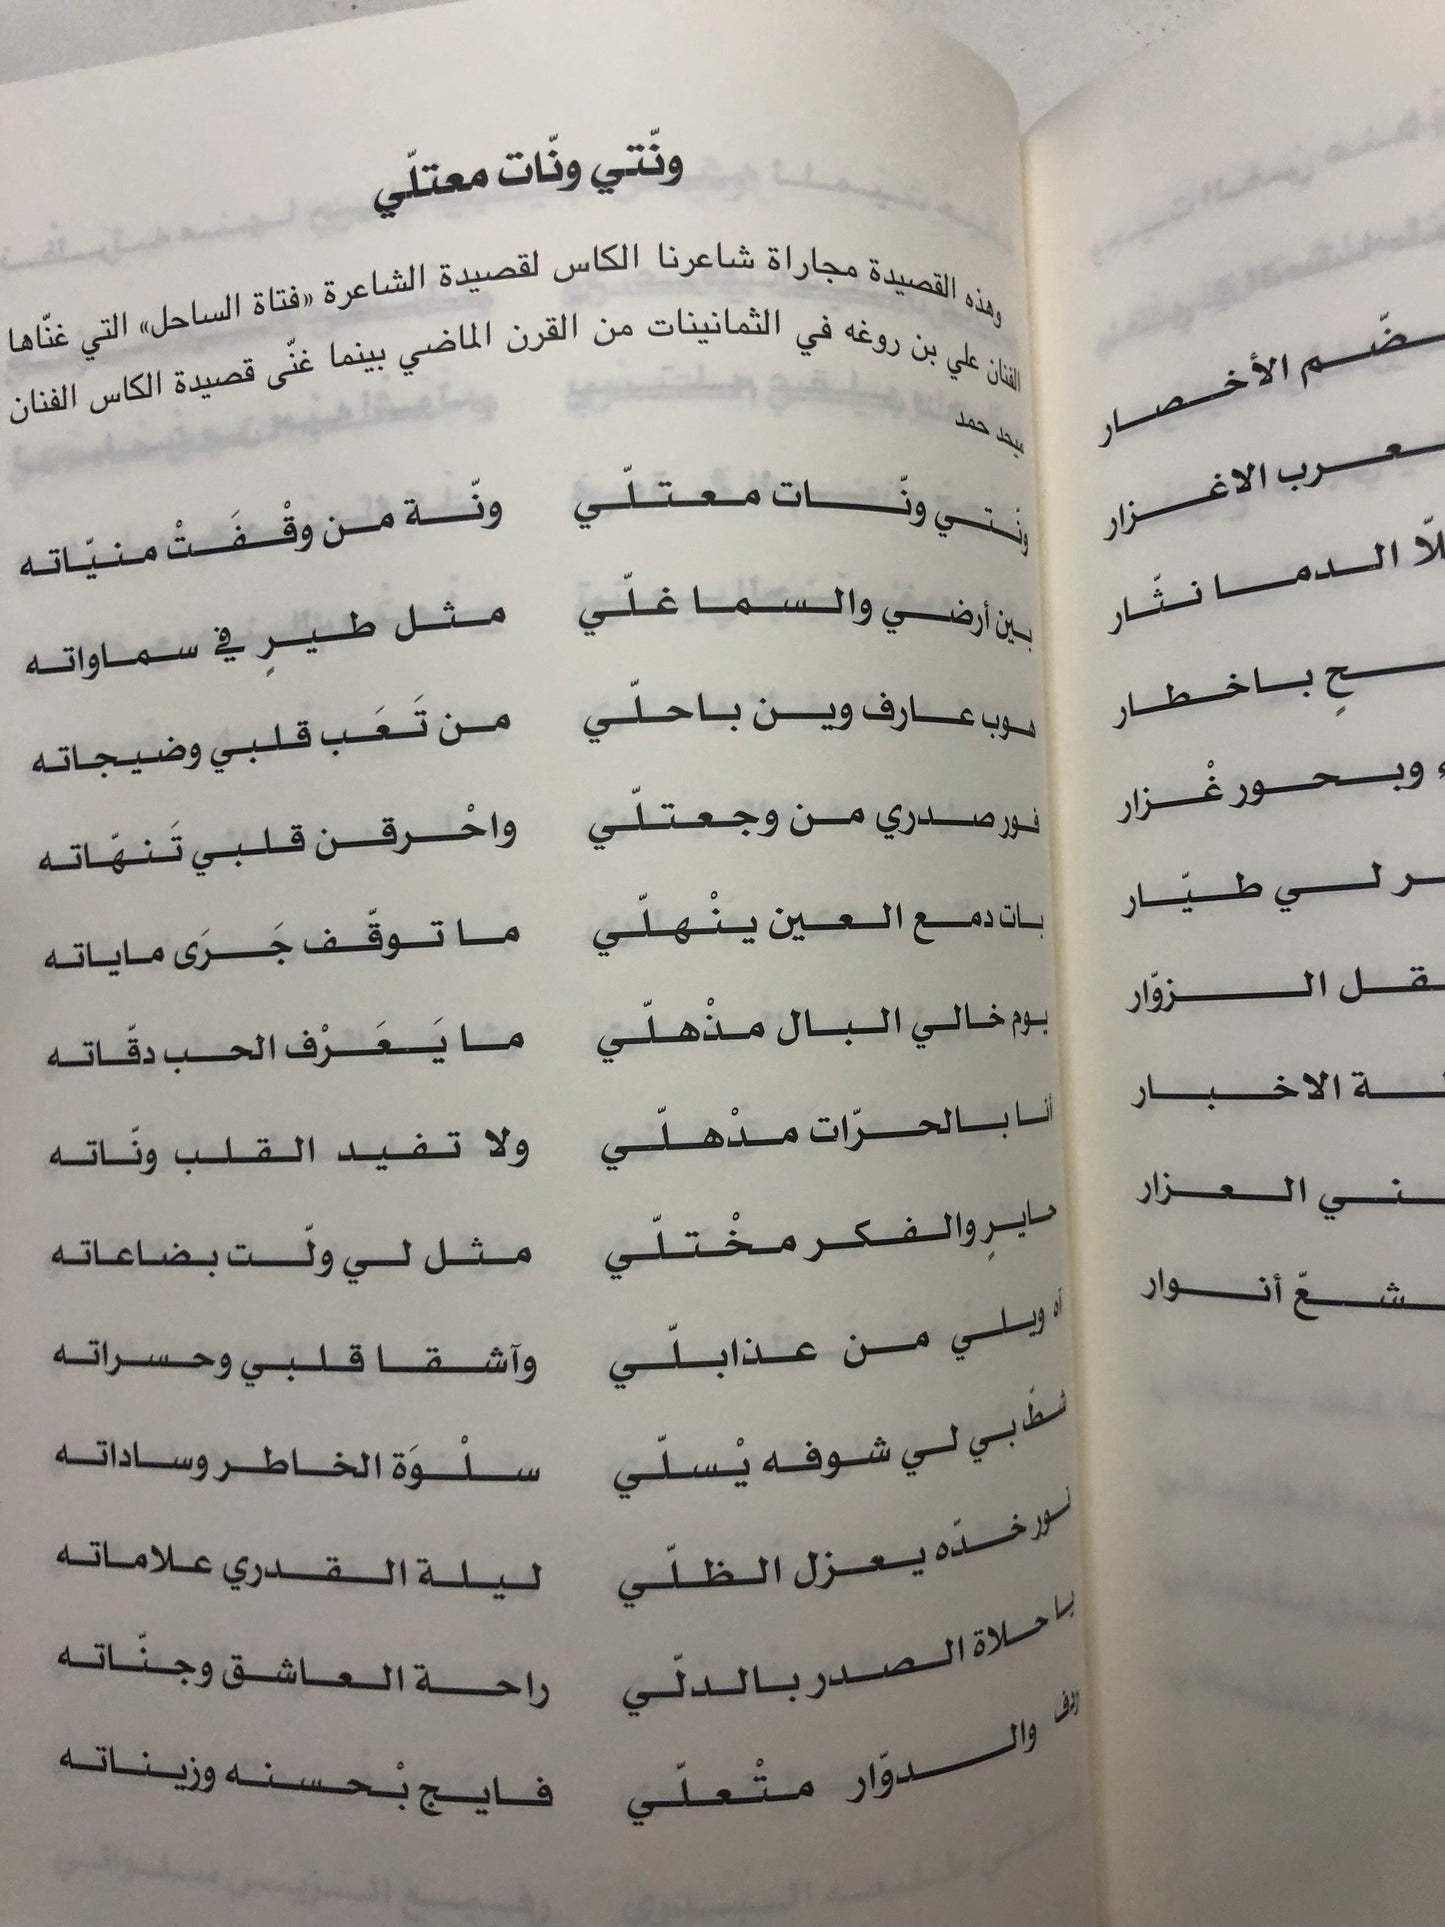 ونّتي ونّات معتلّي
وهذه القصيدة مجاراة شاعرنا الكاس لقصيدة الشاعرة «فتاة الساحل» التي غنّاها
الفنان علي بن روغه في الثمانينات من القرن الماضي بينما غنّى قصيدة الكاس الفنان
ميحد حمد
ونّتي ونّات معتلّي ونّة من وقْفَتْ منيّاته
بين أرضي والسما غلّي مثل طيرٍ في سماواته
هوب عارف وين باحلّي من تَعَب قلبي وضيجاته
فور صدري من وجعتلّي واحْرقن قلبي تَنهّاته
بات دمع العين ينْهلّي ما توقّف جَرَى ماياته
يوم خالي البال مذْهلّي ما يَعَرْف الحب دقّاته
أنا بالحرّات مدْهلّي ولا تفيد القلب ونّاته
حايرٍ والفكر مخْتلّي مثل لي ولّت بضاعاته
آه ويلي من عذابلّي وآشقا قلبي وحسراته
شطّ بي لي شوفه يْسلّي سلْوَة الخاطر وساداته
نور خدّه يعزل الظلّي ليلة القدري علاماته
يا حلاة الصدر بالدلّي راحة العاشق وجنّاته
ردف والدوّار متْعلّي فايج بْحسنه وزيناته
ضّم الأخصار
عرب الاغزار
لّا الدما نثّار
حٍ باخطار
ء وبحور غْزار
ر لي طيّار
قل الزوّار
ة الاخبار
ني العزار
شعّ أنوار